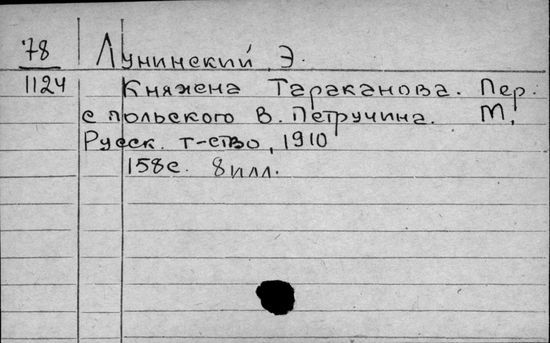 78 Лунинский, Э.
1124 Княжена Тараканова. Пер.
с польского В. Петручина. М,
Русск. т-ство, 1910
158с. 8 илл.